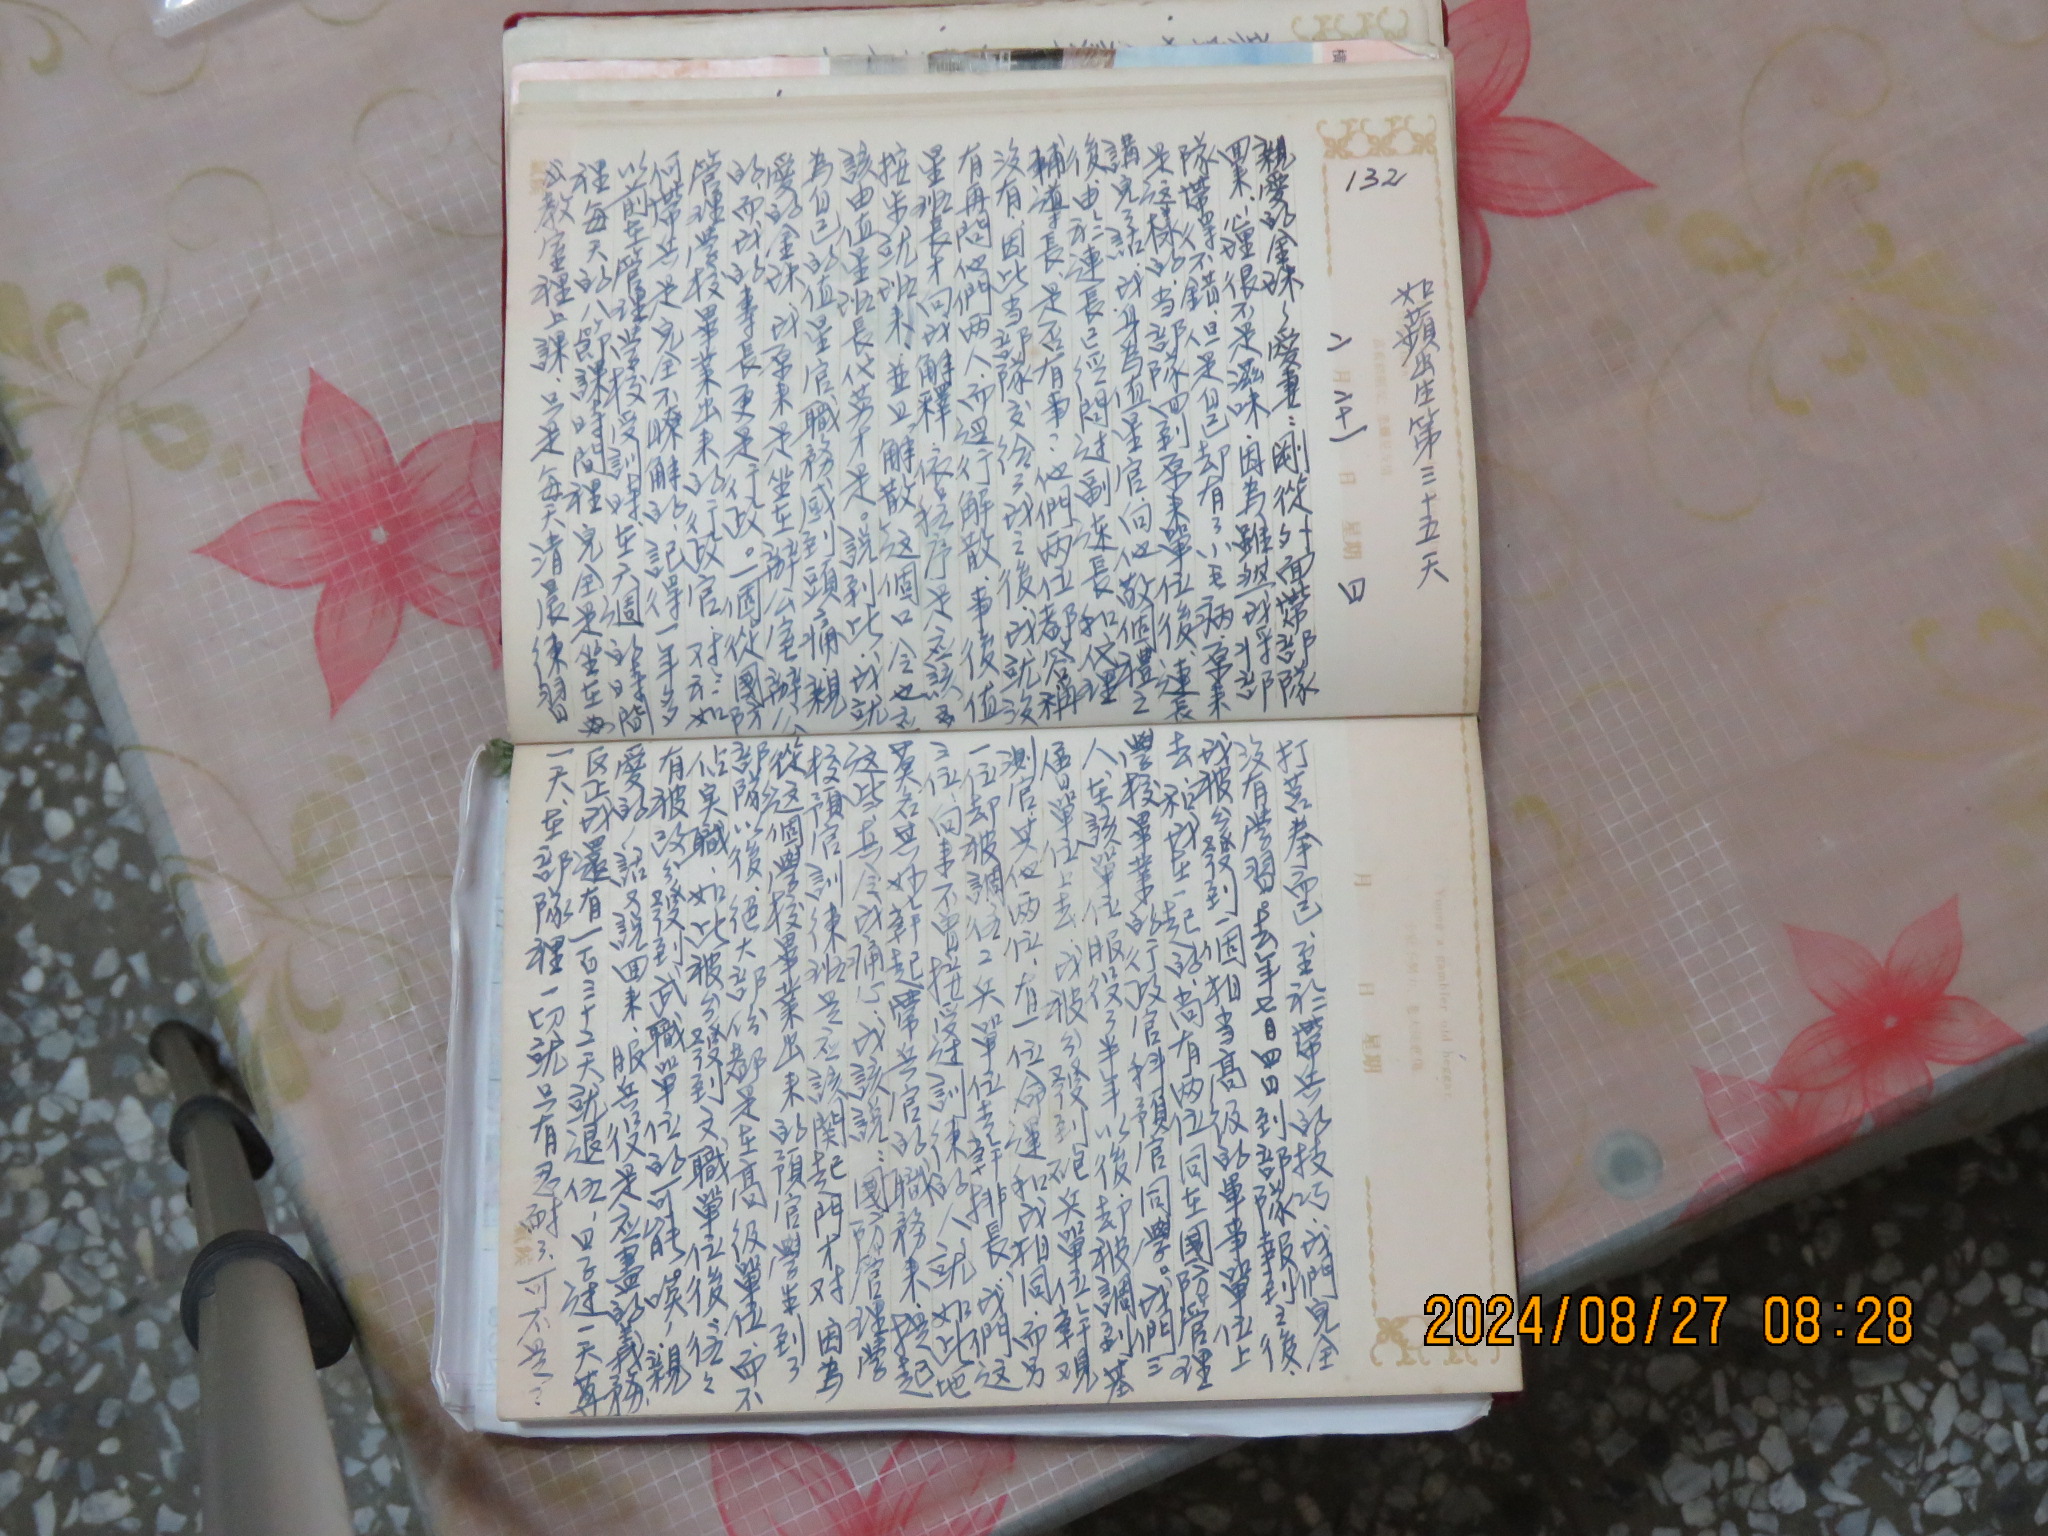 132
如蘋出生第三十五天
二月二十一日 星期四
親愛的金珠、愛妻：剛從外面帶部隊
回來，心裡很不是滋味，因為雖然我將部
隊帶得不錯，但是自己却有了小毛病，原來
是這樣的，当部隊回到原來單位後，連長
講完話，我身為值星官，向他敬個禮之
後由於連長已經問过副連長和代理
輔導長，是否有事？他們兩位都答稱
沒有，因此当部隊交給了我之後，我就沒
有再問他們兩人，而逕行解散，事後值
星班長才向我解釋，依程序是应該
按步就班來，並且「解散」这個口令也
該由值星班長代劳才是。說到此，我就
為自己的值星官職務感到頭痛，親
愛的金珠，我原來是坐在辦公室辦公
的，而我的專長更是行政。一個從國防
管理學校畢業出來的行政官，对於如
何帶兵是完全不瞭解的，記得一年多
以前在管理學校受訓時，在六週的時間
裡每天的八節課時間裡完全是坐在
教室裡上課，只是每天清晨練習
打莒拳而已，至於帶兵的技巧，我們完全
沒有學習。去年七月四日到部隊報到之後，
我被分發到一個相当高级的軍事單位上
去，和我在一起的，尚有兩位同在國防管理
學校畢業的行政官科預官同學。我們三
人，在該單位服役了半年以後，却被調到基
層單位上去，我被分發到砲兵單位幹觀
測官，其他兩位，有一位命運和我相同，而另
一位却被調往工兵單位去幹排長，我們这
三位，向來不曾接受过訓練的人，就如此地
莫名其妙幹起帶兵官的職務來，提起
这些真令我痛心，我該說：國防管理學
校預官訓練班是应該関起門才对，因為
從这個學校畢業出來的預官學生到了
部隊以後，絕大部份都是在高级單位，而不
佔実職，如此被分發到文職單位後，往往
有被改分發到武職單位的可能。唉，親
愛的，話又說回來，服兵役是应盡的義務，
反正我還有一百三十二天就退伍，日子过一天算
一天，在部隊裡一切就只有忍耐了，可不是？